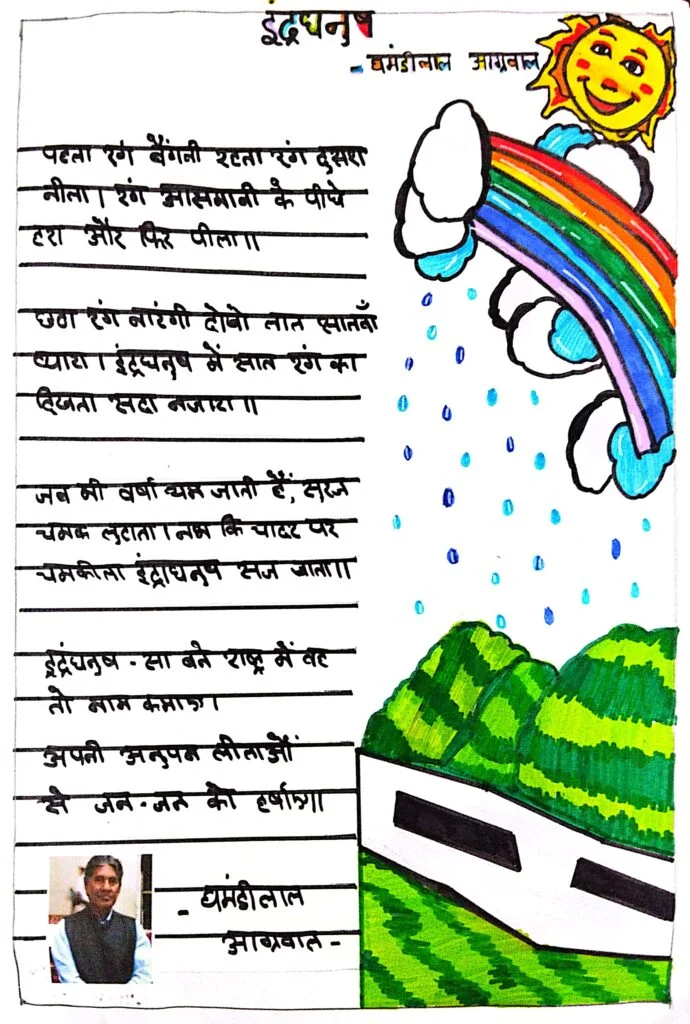 इंद्रधनुष
- घमंडीलाल आग्रवाल
पहला रंग बैंगनी रहता रंग दुसरा
नीला। रंग आसमानी के पीछे
हरा और फिर पीला॥
छठा रंग नारंगी देखो लाल सातवाँ
प्यारा। इंद्रधनुष में सात रंग का
दिखता सदा नजारा॥
जब भी वर्षा थम जाती हैं, सूरज
चमक लुटाता। नभ कि चादर पर
चमकीला इंद्राधनुष सज जाता॥
इद्रंधनुष - सा बने राष्ट्र में वह
तो नाम कमाए।
अपनी अनुपम लीलाओं
से जन-जन को हर्षाए॥
- घमंडीलाल
आग्रवाल -